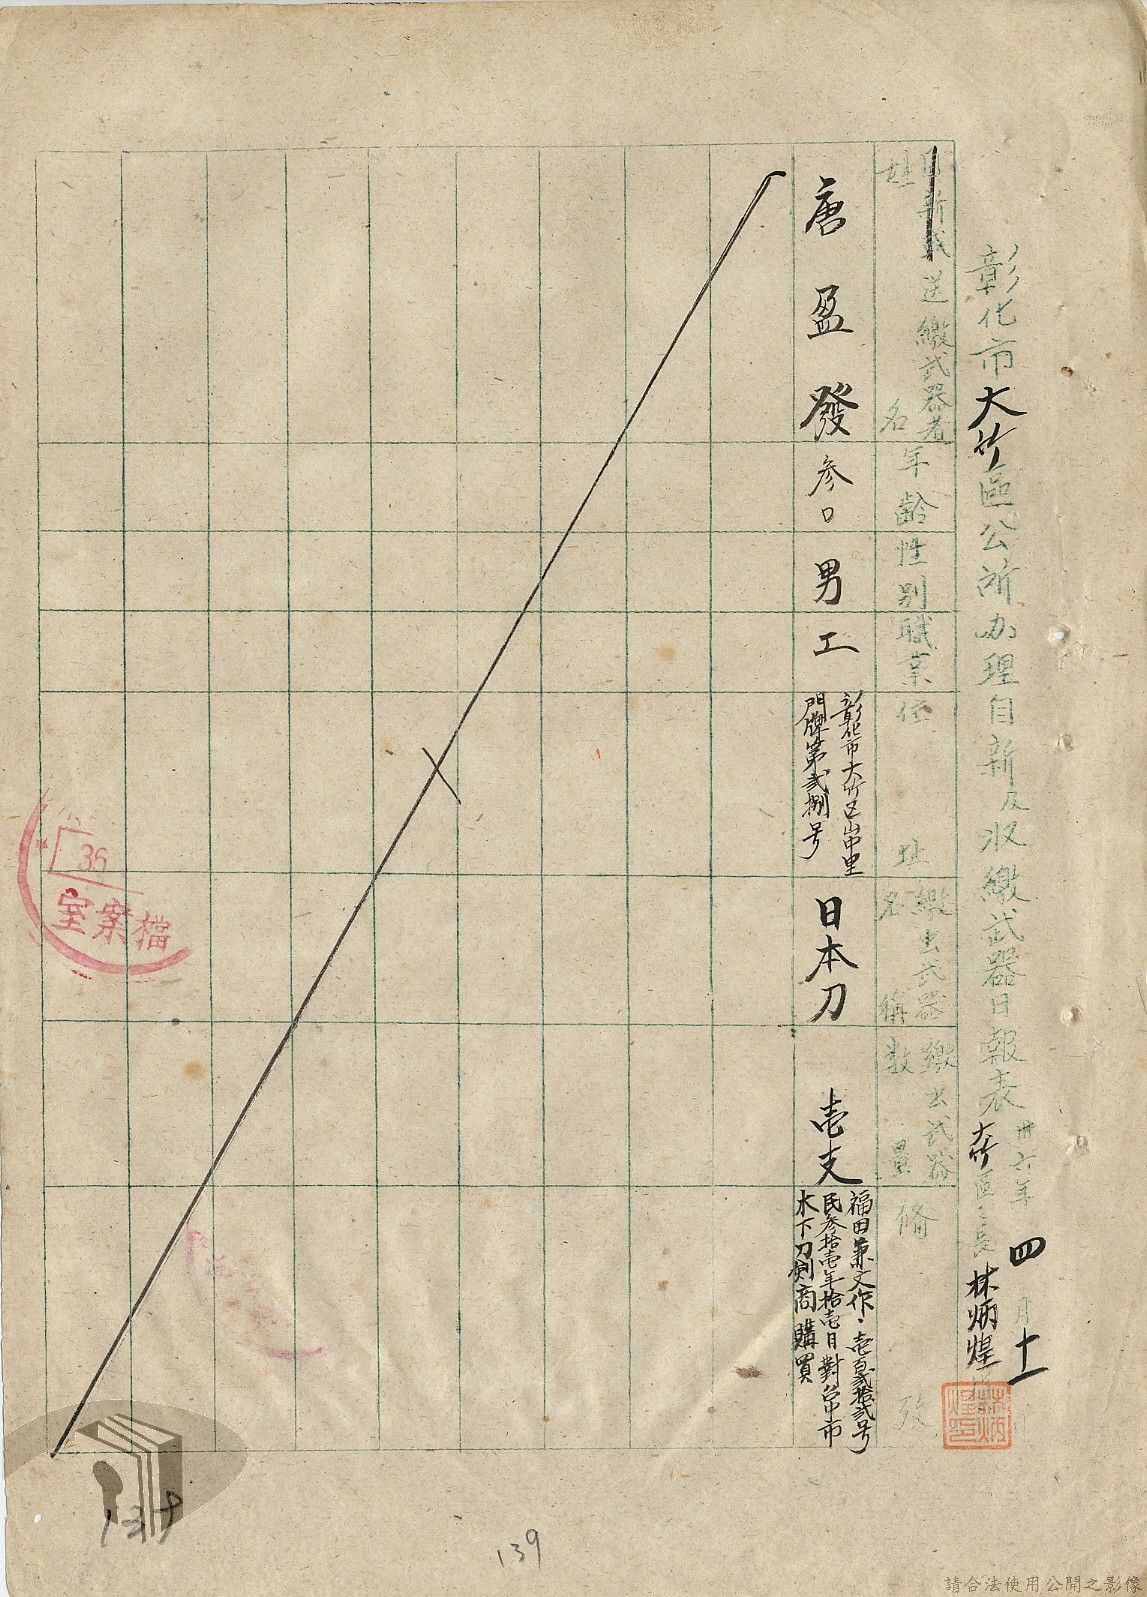 彰化市大竹區公所办理自新及收繳武器日報表
卅六年四月十一
大竹區區長林炳煌
自新或送繳武器者
姓名
年齡
性別
職業
住址
繳出武器名稱
繳出武器數量
俻攷
唐盈發
参〇
男
工
彰化市大竹区山中里
門牌第弍捌号
日本刀
壱支
福田兼文作·壱百弍拾弍号
民参拾壱年拾壱日對台中市
木下刀劍商購買
36
檔案室
139
139
請合法使用公開之影像